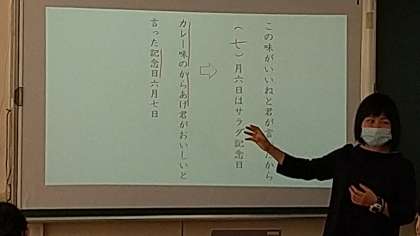 この味がいいねと君が言ったから
（七）月六日はサラダ記念日
⇨
カレー味のからあげ君がおいしいと
言った記念日六月七日